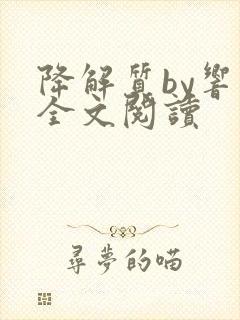 降解質by響
全文閱讀
尋夢的喵